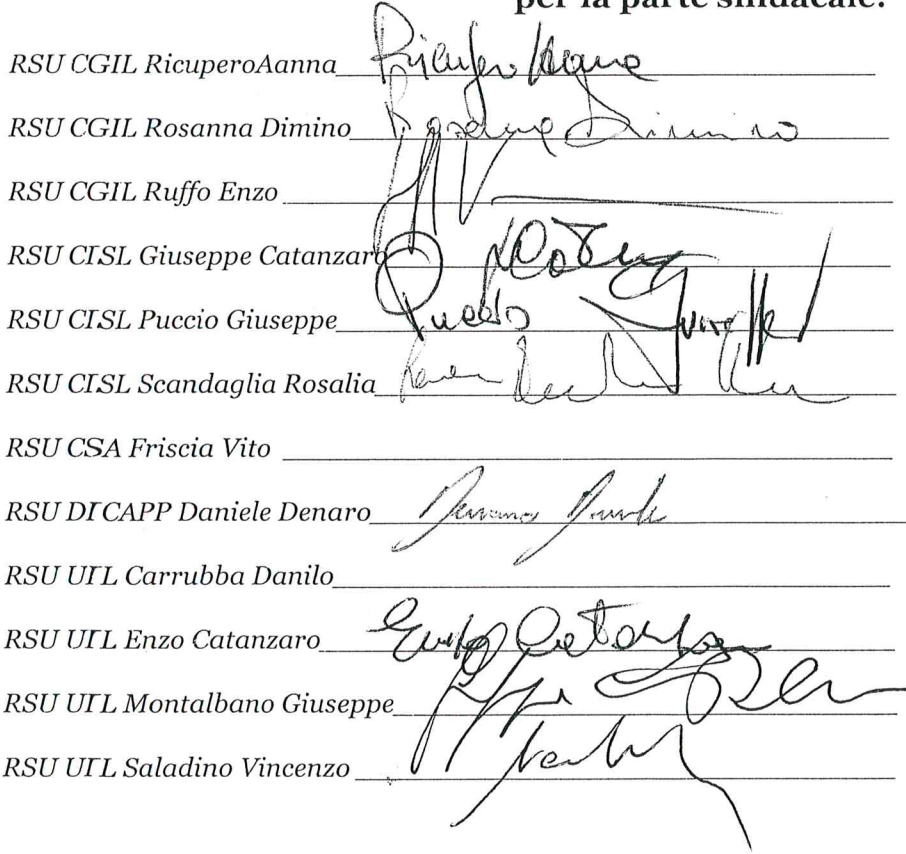 per la parte sindacale:
RSU CGIL RicuperoAanna Ricupero Aanna
RSU CGIL Rosanna Dimino Rosanna Dimino
RSU CGIL Ruffo Enzo
RSU CISL Giuseppe Catanzaro
RSU CISL Puccio Giuseppe Puccio Giuseppe
RSU CISL Scandaglia Rosalia
RSU CSA Friscia Vito
RSU DICAPP Daniele Denaro Denaro Daniele
RSU UIL Carrubba Danilo
RSU UIL Enzo Catanzaro Enzo Catanzaro
RSU UIL Montalbano Giuseppe
RSU UIL Saladino Vincenzo